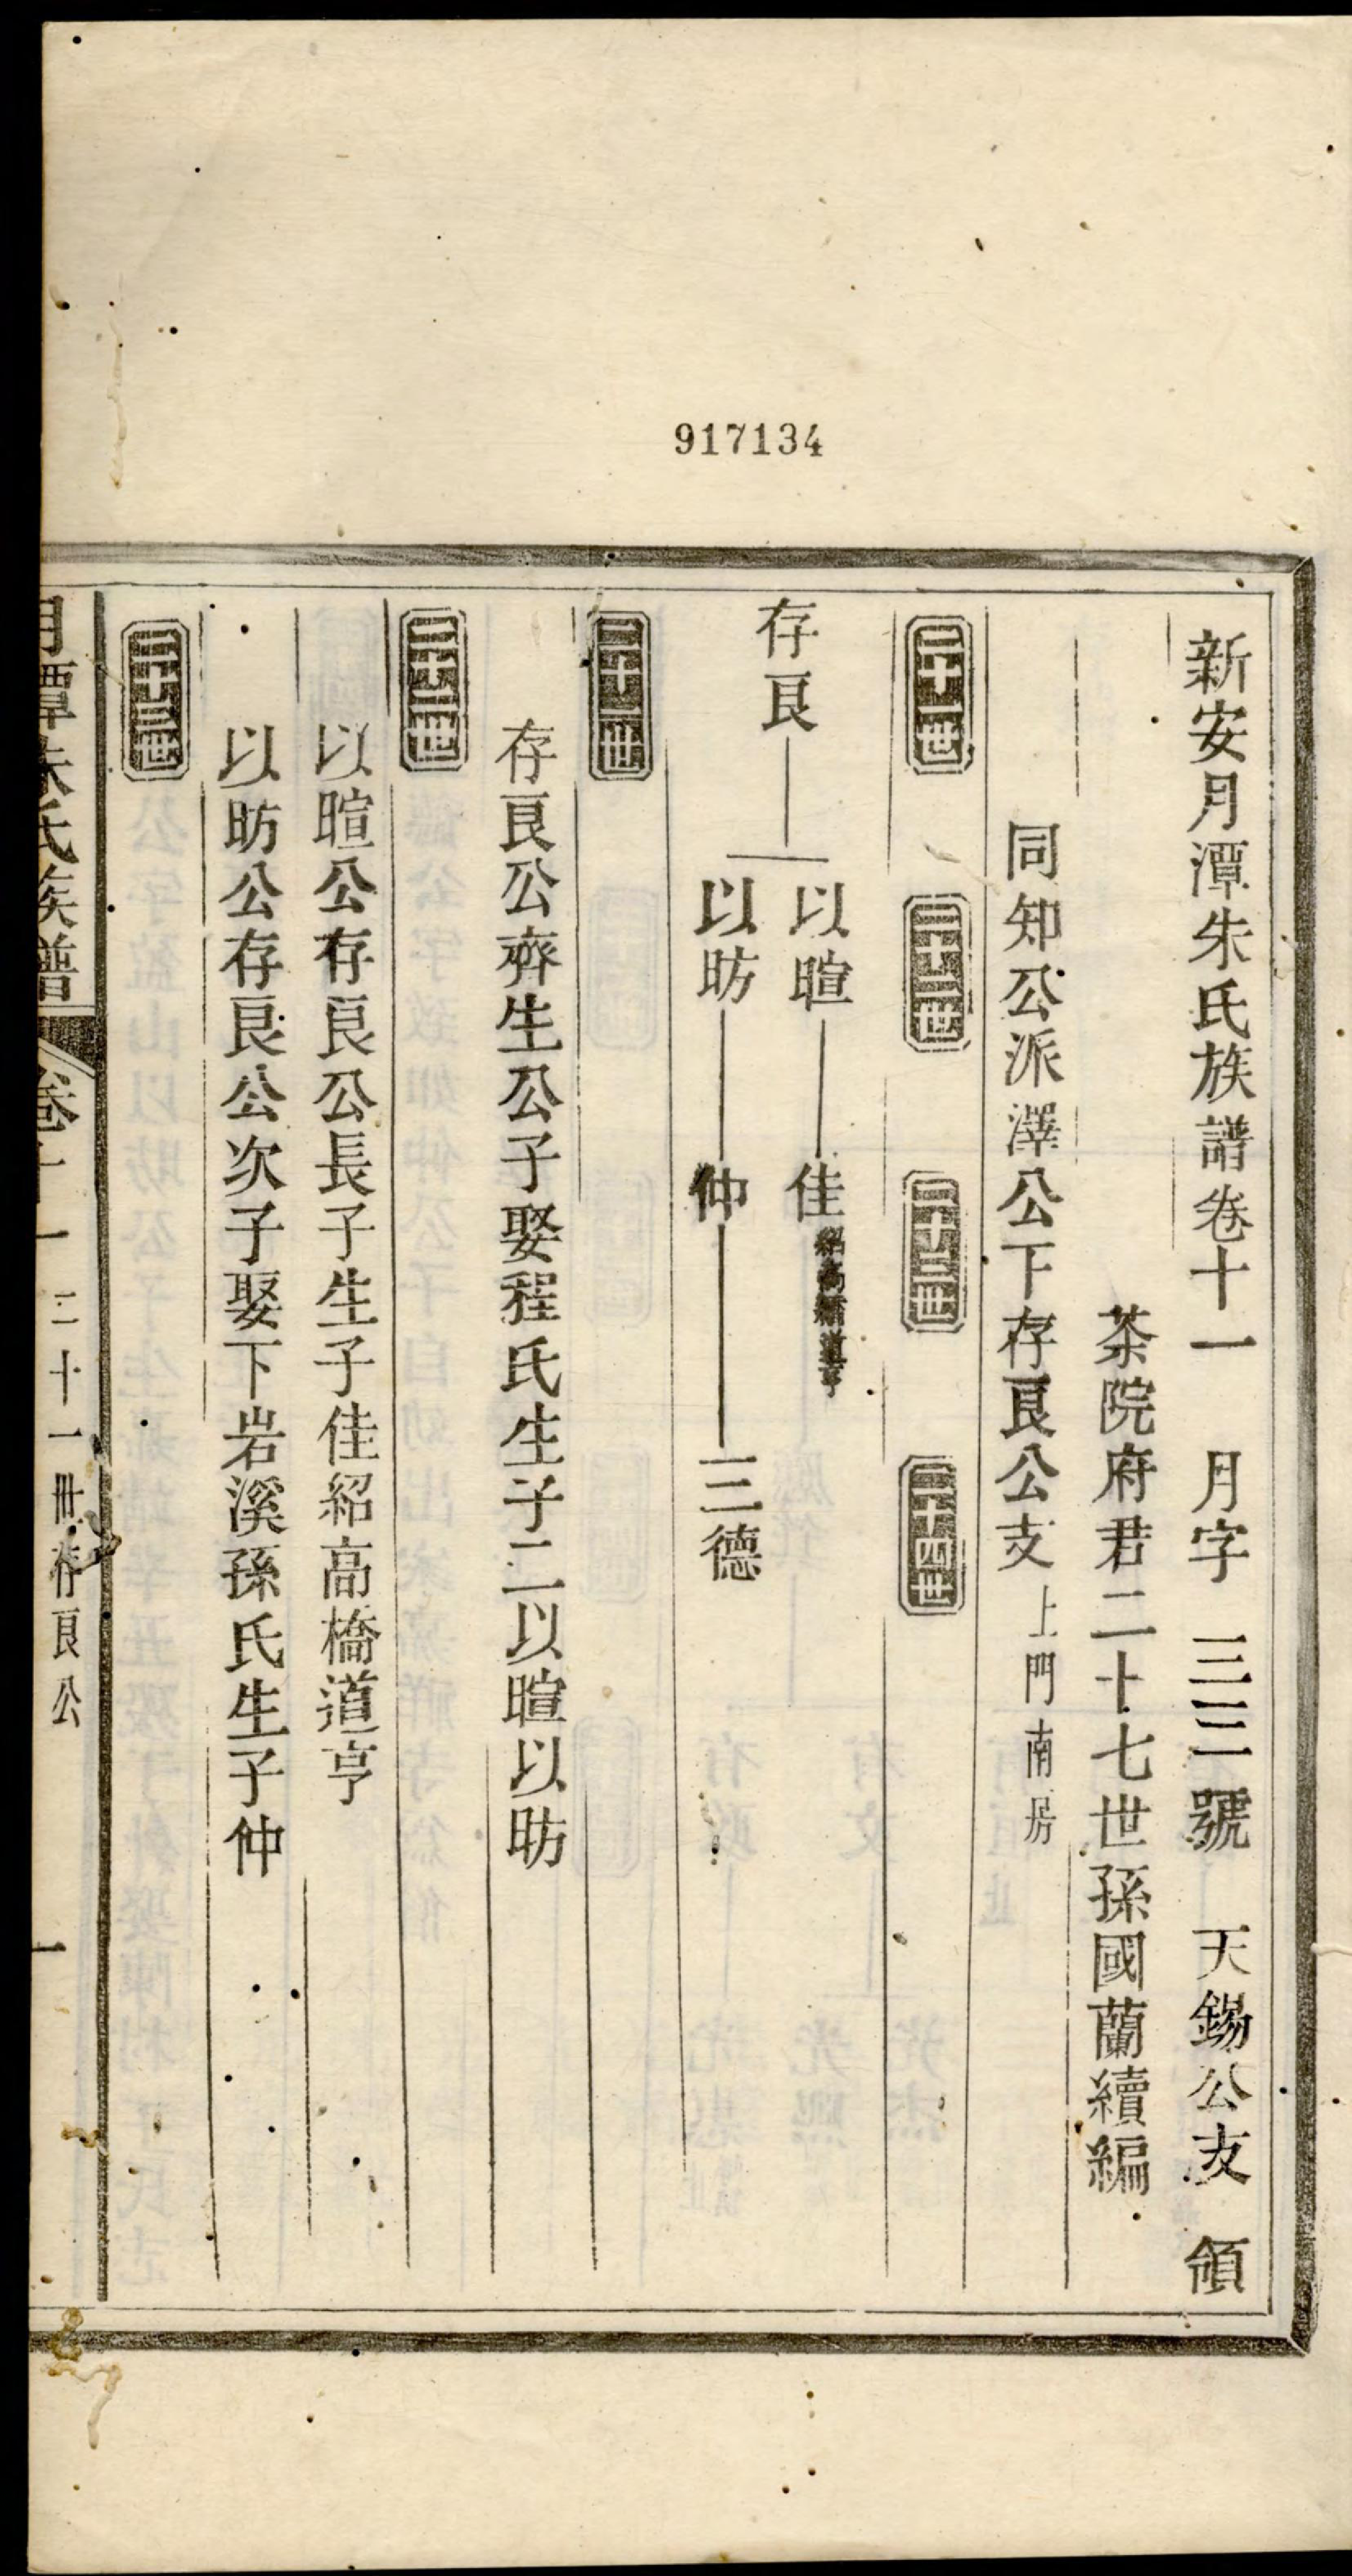 917134
新安月潭朱氏族譜卷十一 月字 三三號 天錫公支 領
茶院府君二十七世孫國蘭續編
同知公派澤公下存良公支 上門南房
二十一世 二十二世 二十三世 二十四世
存良 以暄 佳 紹高橋道亨
以昉 仲 三德
二十一世
存良公齊生公子娶程氏生子二以暄以昉
二十二世
以暄公存良公長子生子佳紹高橋道亨
以昉公存良公次子娶下岩溪孫氏生子仲
二十三世
月潭朱氏族譜 卷十一 二十一世存良公 一